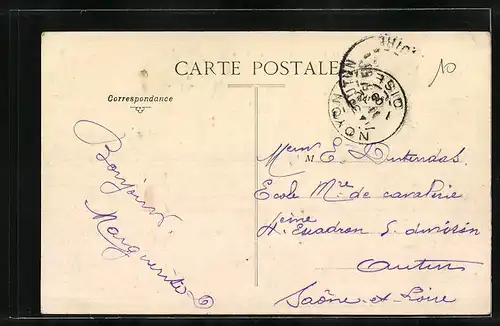 CARTE POSTALE
NOYON OISE
10
Correspondance
Bonjour.
Marguerite
M
E.
Ecole Mre de cavalerie
4eme Escadron 5 division
Autun
Saône-et-Loire